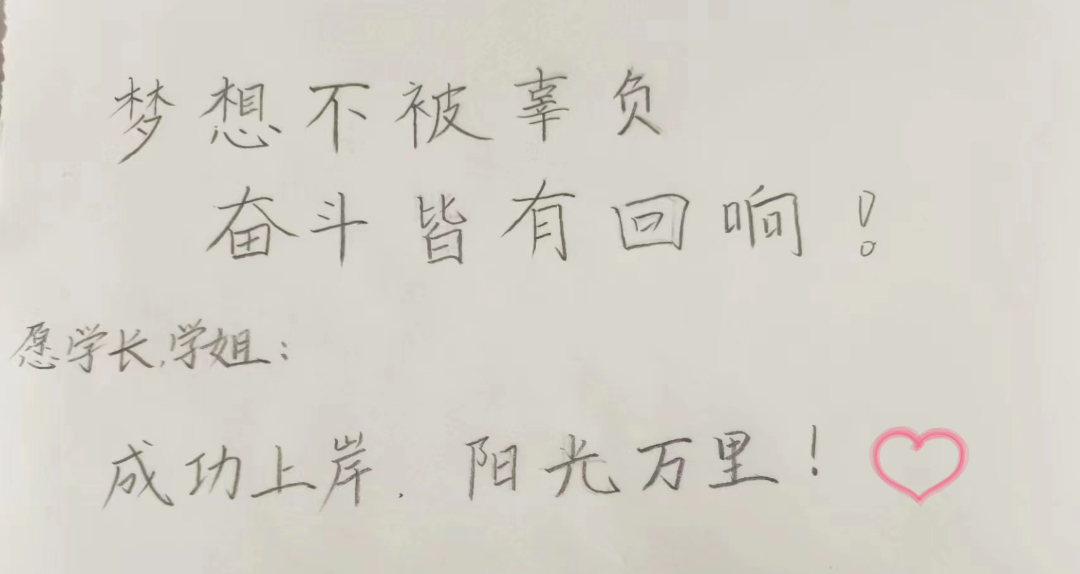 梦想不被辜负
奋斗皆有回响！
愿学长,学姐：
成功上岸.阳光万里！